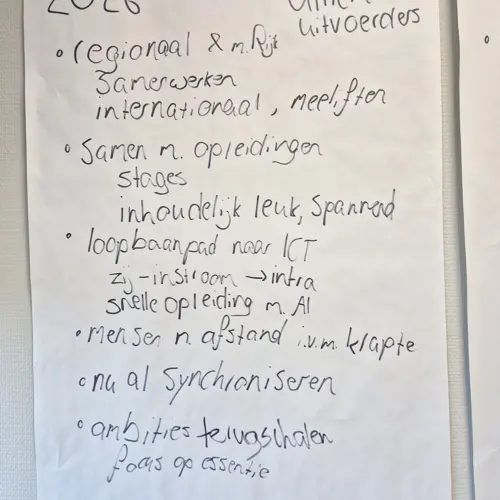 2026
uitvoerders
• regionaal & m. Rijk
samenwerken
internationaal, meeliften
• Samen m. opleidingen
stages
inhoudelijk leuk, spannend
• loopbaanpad naar ICT
zij-instroom → intra
snelle opleiding m. AI
• mensen m. afstand i.v.m. krapte
• nu al synchroniseren
• ambities terugschalen
focus op essentie